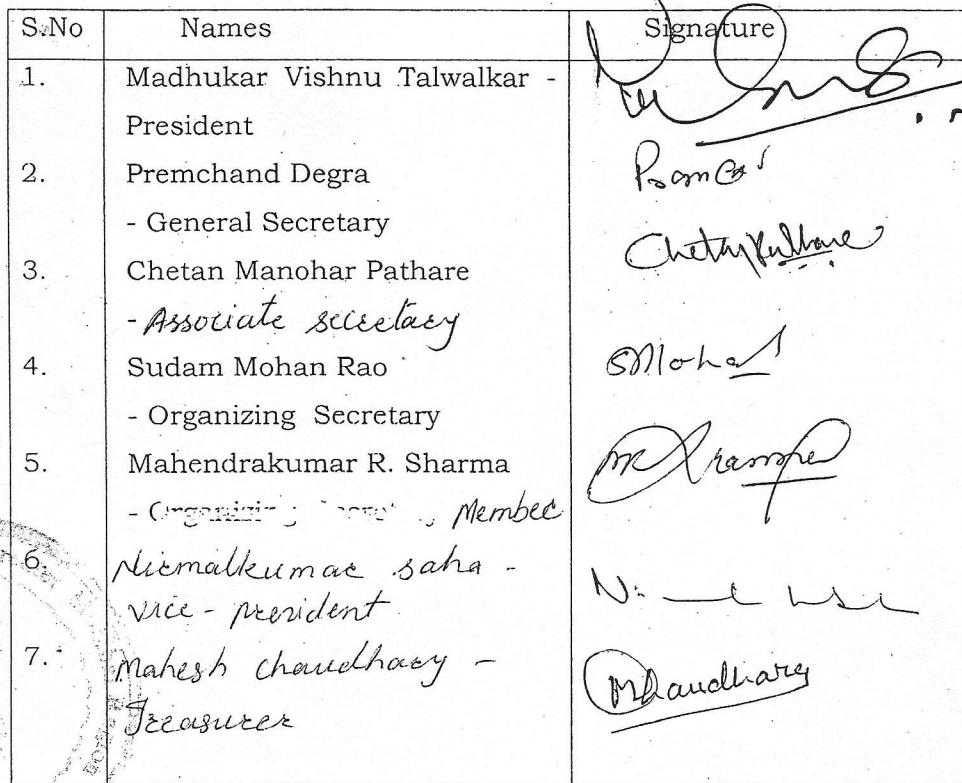 S.No Names Signature
1. Madhukar Vishnu Talwalkar -
President
2. Premchand Degra
- General Secretary
3. Chetan Manohar Pathare
- Associate secretary
4. Sudam Mohan Rao
- Organizing Secretary
SMohan
5. Mahendrakumar R. Sharma
- Organizing Secretary Member
6. Nirmalkumar saha -
vice - president
7. Mahesh chaudhary -
Mchaudhary
Treasurer